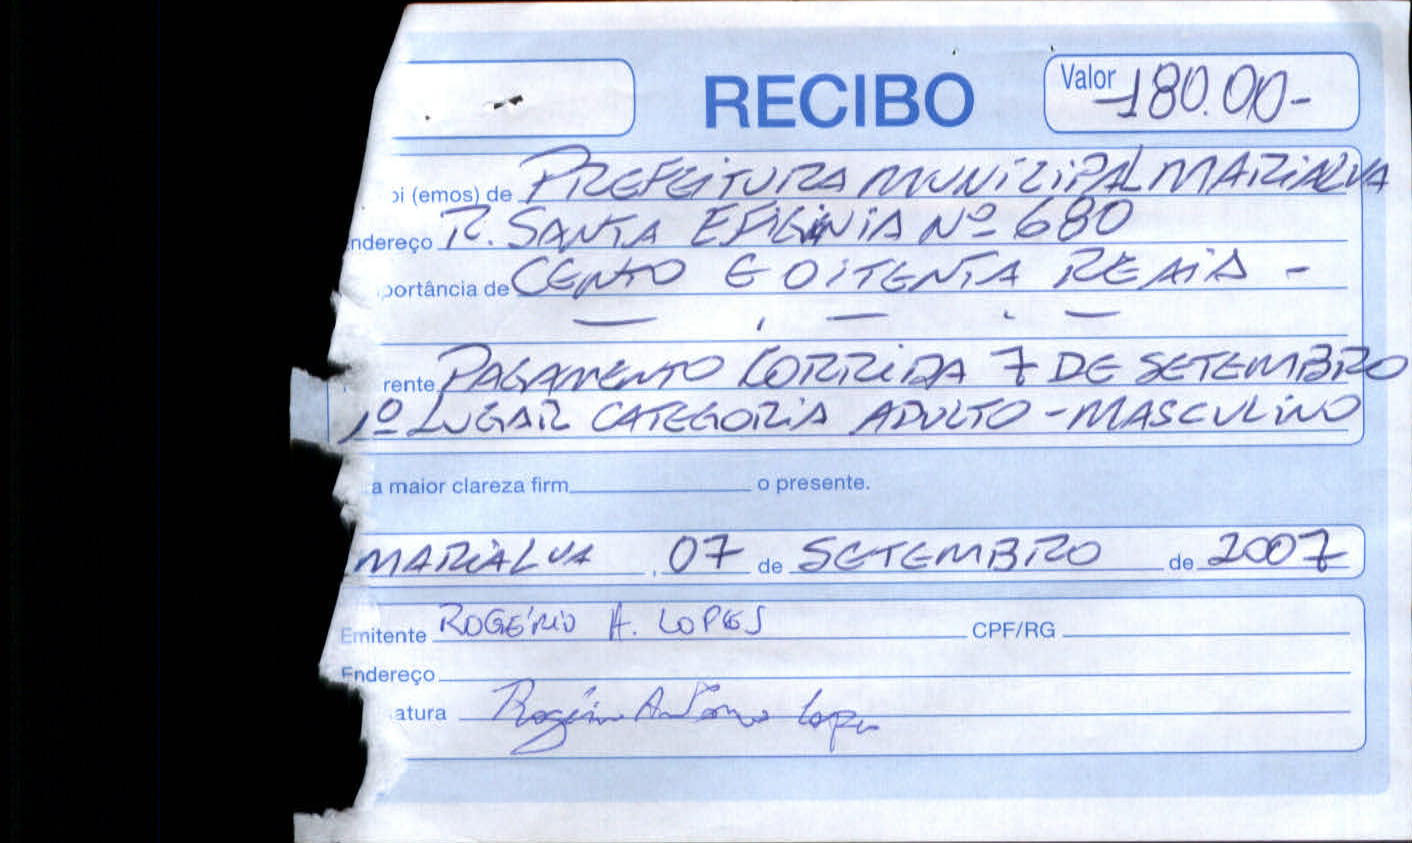 RECIBO
Valor 180.00-
oi (emos) de PREFEITURA MUNICIPAL MARIALVA
ndereço R. SANTA EFIGÊNIA Nº 680
portância de CENTO E OITENTA REAIS -
rente PAGAMENTO CORRIDA 7 DE SETEMBRO
1º LUGAR CATEGORIA ADULTO - MASCULINO
a maior clareza firm o presente.
MARIALVA, 07 de SETEMBRO de 2007
Emitente ROGÉRIO A. LOPES CPF/RG
Endereço
atura Rogério Antonio Lopes